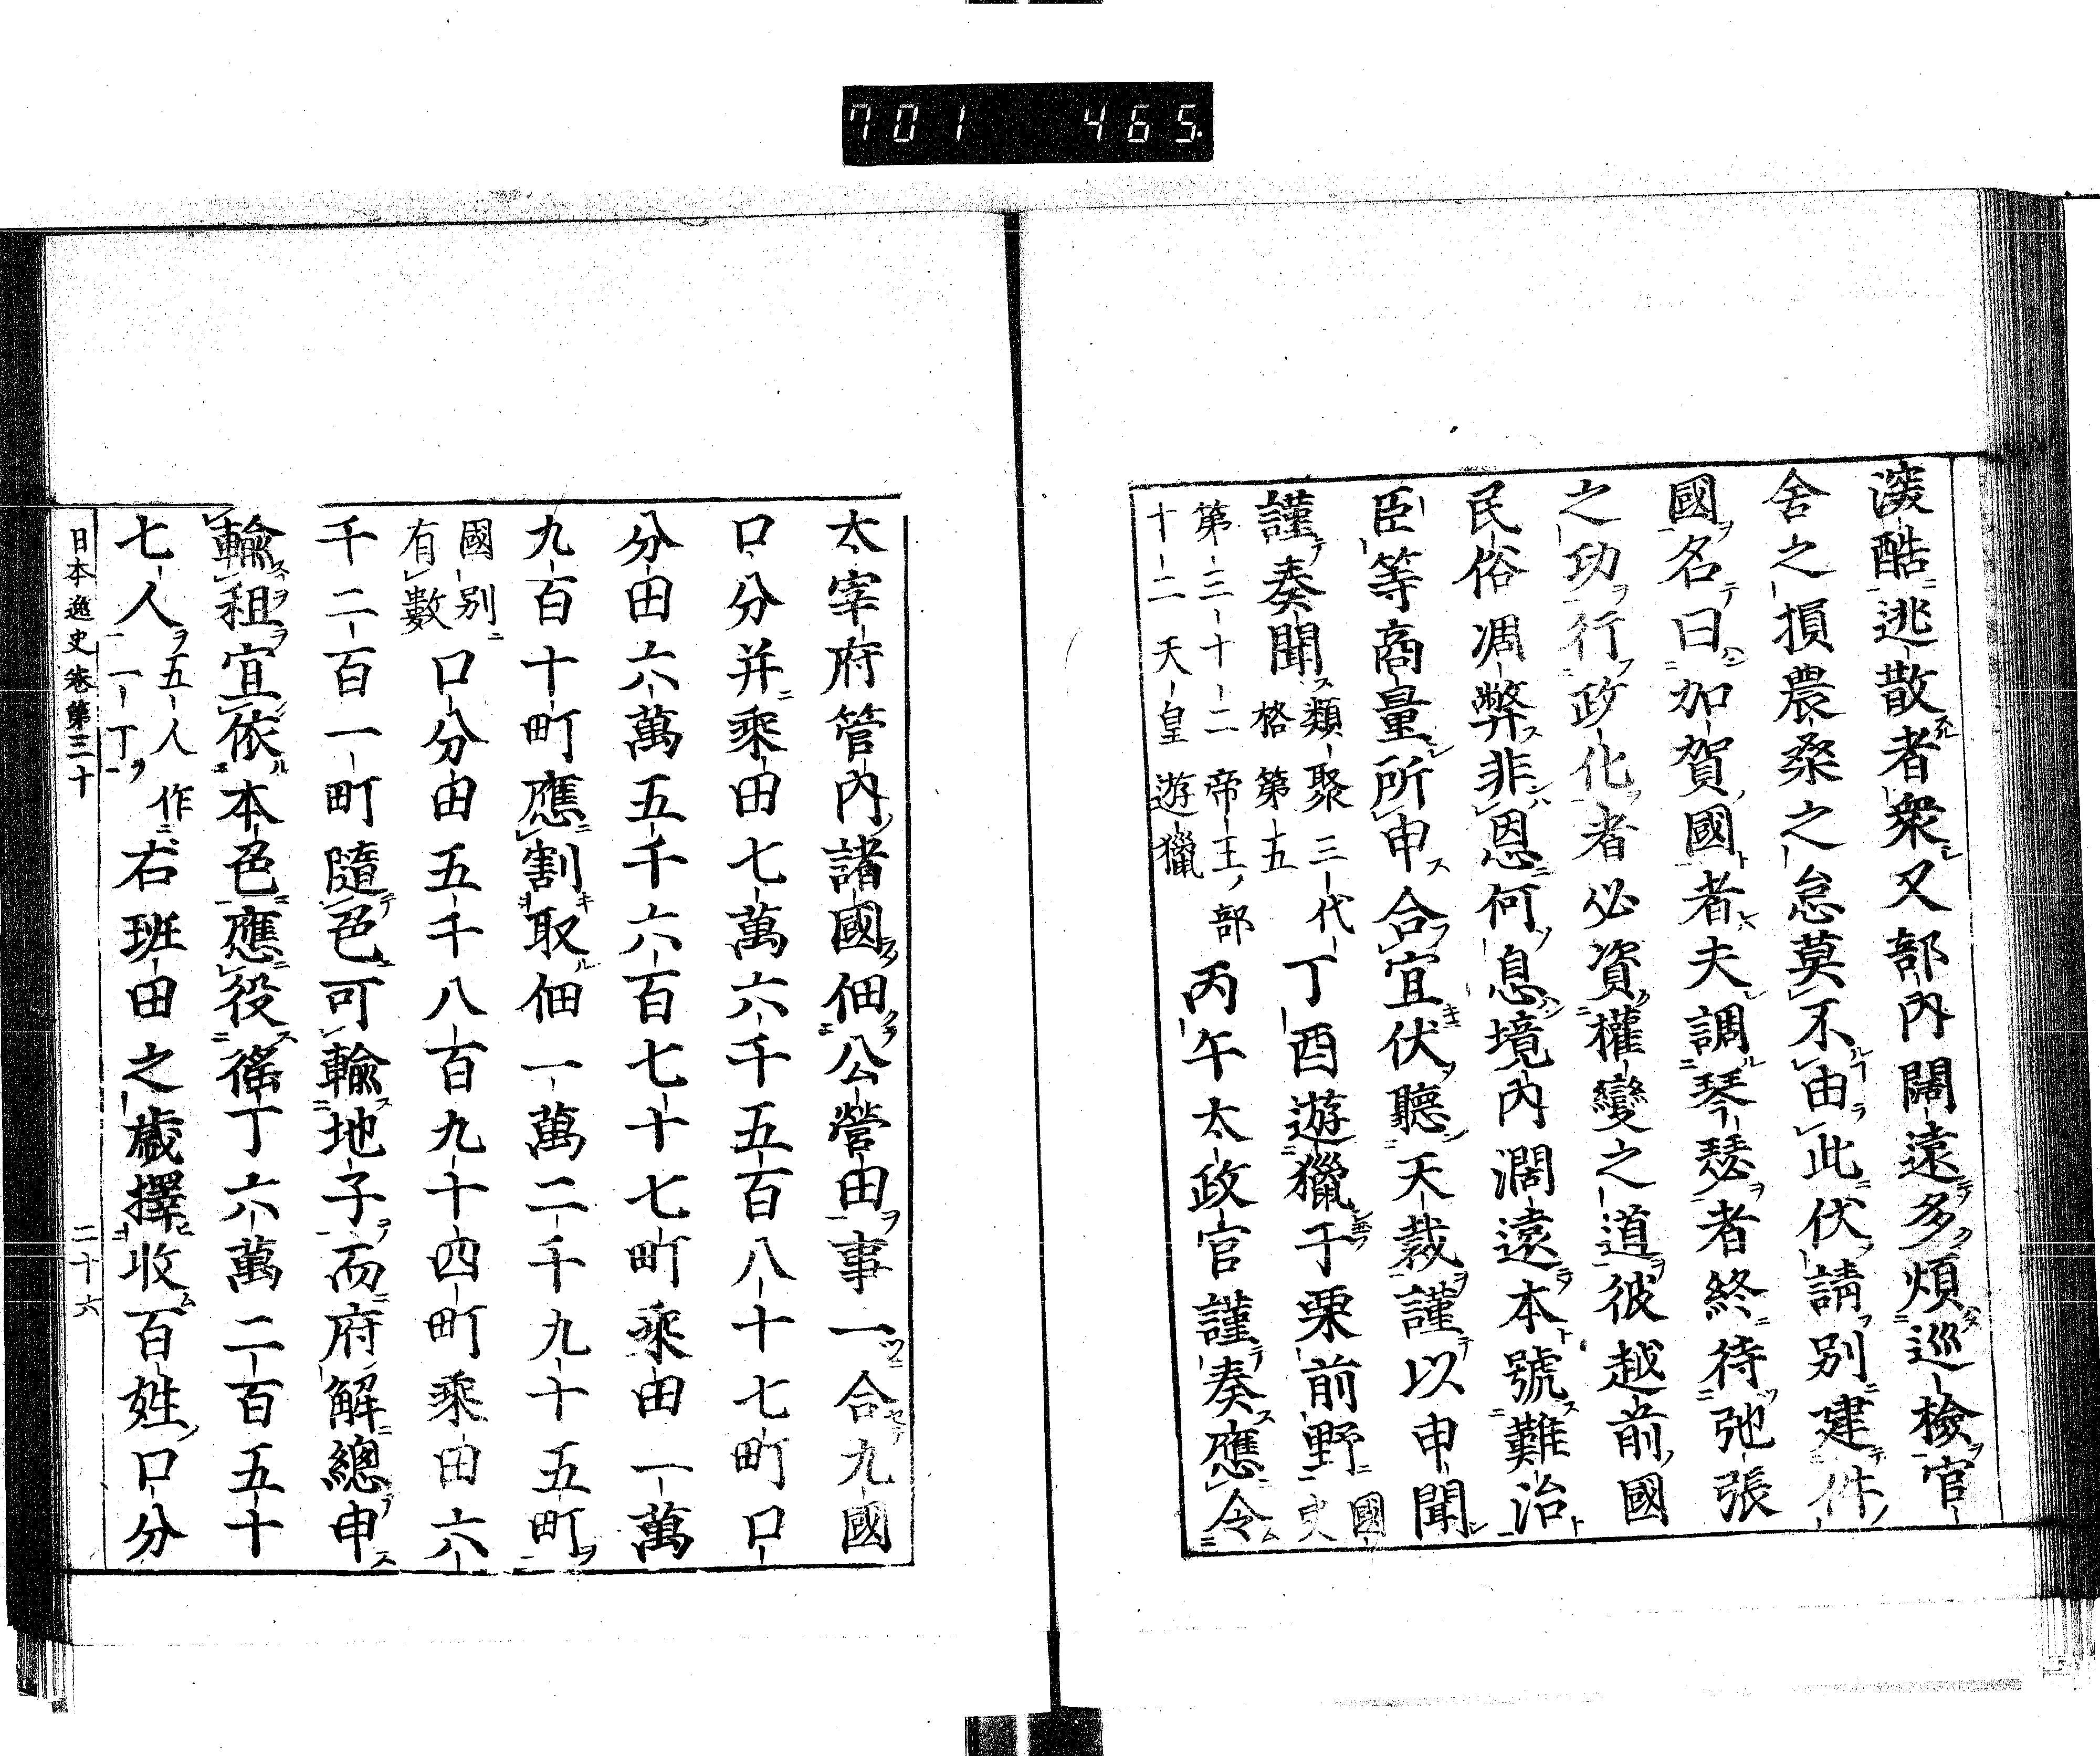 701 465
酷逃散者衆又部內闊遠多煩巡檢官
舍之損農桑之怠莫不由此伏請別建件
國名曰加賀國者夫調琴瑟者終待弛張
之功行政化者必資權變之道彼越前國
民俗凋弊非恩何息境內濶遠本號難治
臣等商量所申合宜伏聽天裁謹以申聞
謹奏聞類聚三代格第五丁酉遊獵于栗前野國史
第三十二帝王部十二天皇遊獵丙午太政官謹奏應令
太宰府管內諸國佃公營田事一合九國
口分并乘田七萬六千五百八十七町口
分田六萬五千六百七十七町乘田一萬
九百十町應割取佃一萬二千九十五町
國別有數口分田五千八百九十四町乘田六
千二百一町隨色可輸地子而府解總申
輸租宜依本色應役徭丁六萬二百五十
七人五人作一丁右班田之歲擇收百姓口分
日本逸史卷第三十 二十六